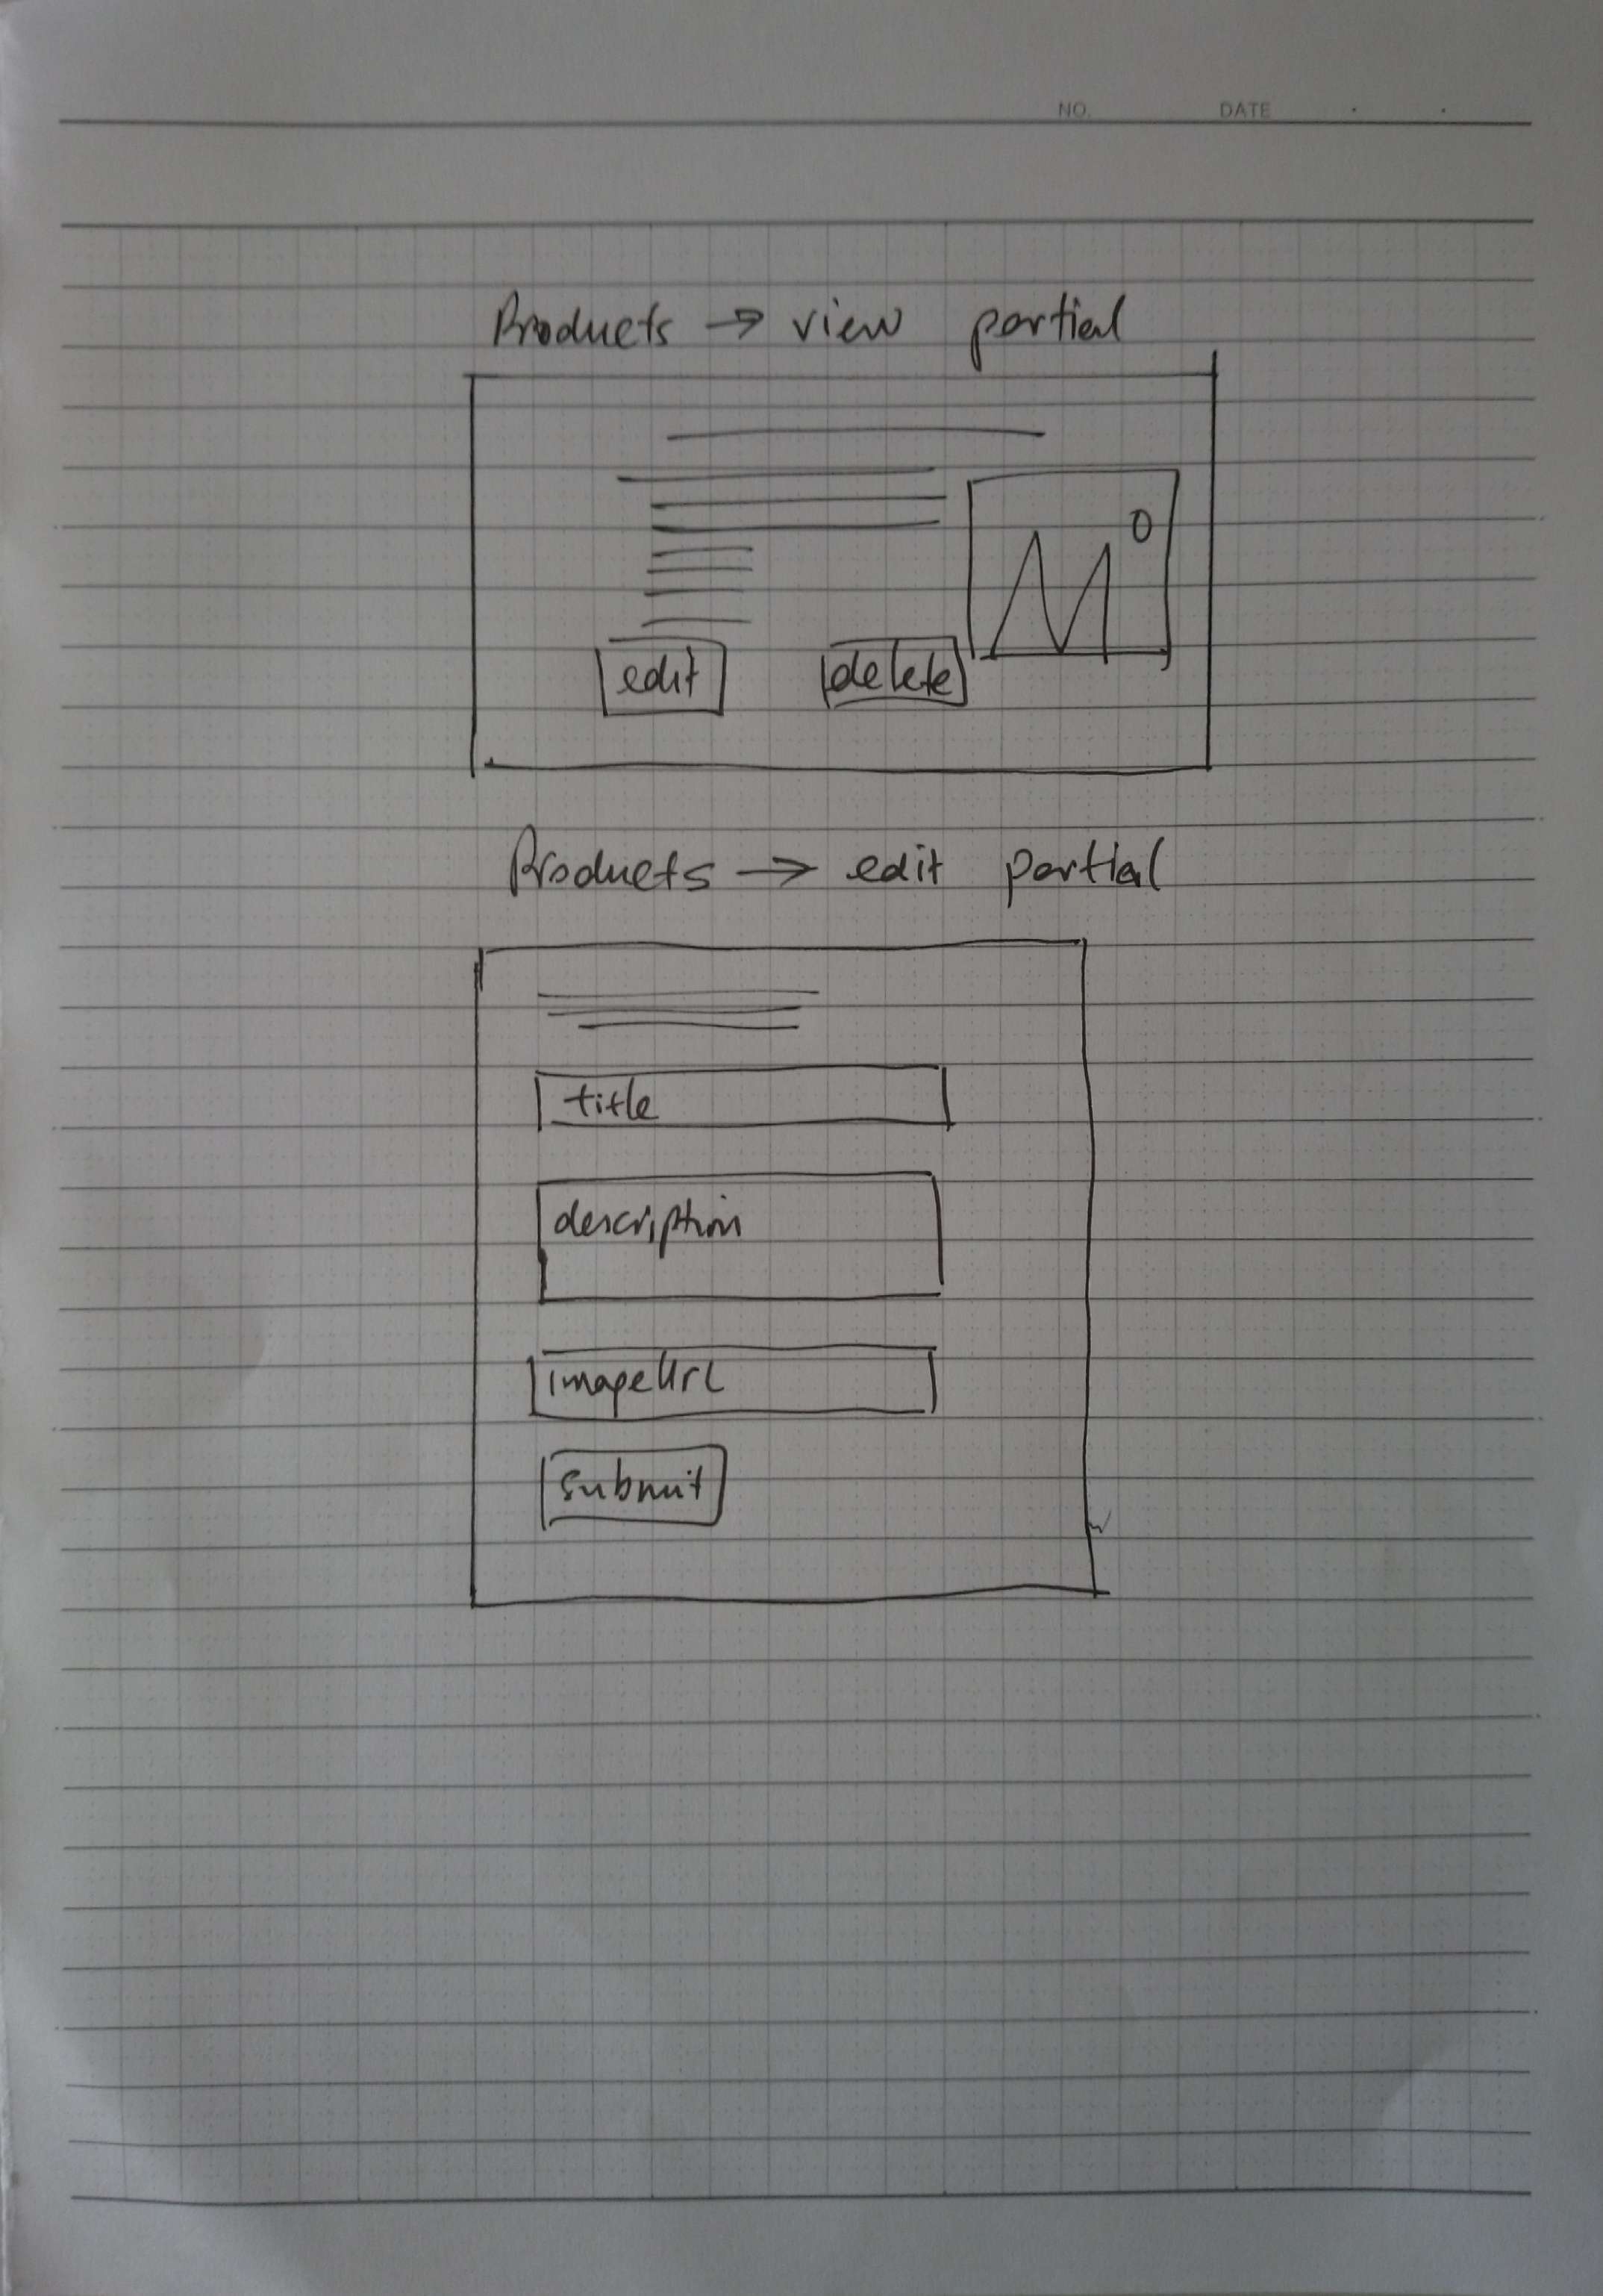 NO. DATE
Products → view partial
edit delete
Products → edit partial
title
description
imageUrl
submit